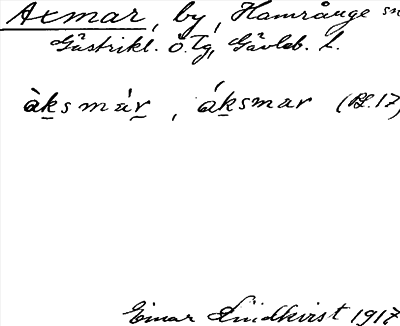 Axmar, by, Hamrånge sn
Gästrikl. ö. Tg, Gävleb. l.
àksmár, áksmar (Bl. 17)
Einar Lindkvist 1917